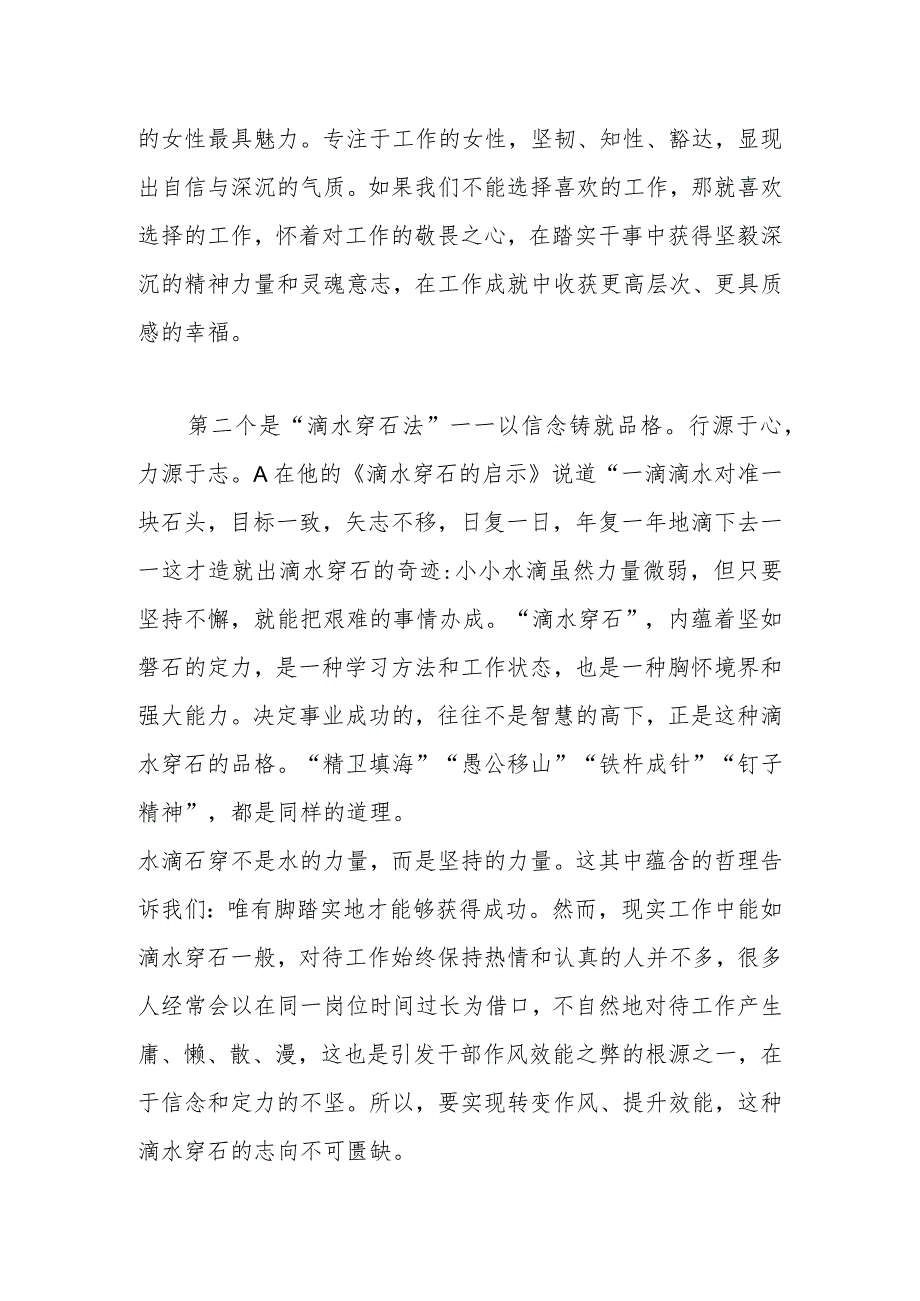 的女性最具魅力。专注于工作的女性，坚韧、知性、豁达，显现
出自信与深沉的气质。如果我们不能选择喜欢的工作，那就喜欢
选择的工作，怀着对工作的敬畏之心，在踏实干事中获得坚毅深
沉的精神力量和灵魂意志，在工作成就中收获更高层次、更具质
感的幸福。
第二个是“滴水穿石法”一一以信念铸就品格。行源于心，
力源于志。A 在他的《滴水穿石的启示》说道“一滴滴水对准一
块石头，目标一致，矢志不移，日复一日，年复一年地滴下去一
一这才造就出滴水穿石的奇迹：小小水滴虽然力量微弱，但只要
坚持不懈，就能把艰难的事情办成。“滴水穿石”，内蕴着坚如
磐石的定力，是一种学习方法和工作状态，也是一种胸怀境界和
强大能力。决定事业成功的，往往不是智慧的高下，正是这种滴
水穿石的品格。“精卫填海”“愚公移山”“铁杵成针”“钉子
精神”，都是同样的道理。
水滴石穿不是水的力量，而是坚持的力量。这其中蕴含的哲理告
诉我们：唯有脚踏实地才能够获得成功。然而，现实工作中能如
滴水穿石一般，对待工作始终保持热情和认真的人并不多，很多
人经常会以在同一岗位时间过长为借口，不自然地对待工作产生
庸、懒、散、漫，这也是引发干部作风效能之弊的根源之一，在
于信念和定力的不坚。所以，要实现转变作风、提升效能，这种
滴水穿石的志向不可匮缺。